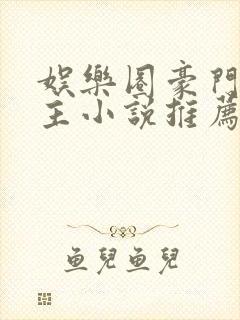 娛樂圈豪門
主小說推薦
魚兒魚兒